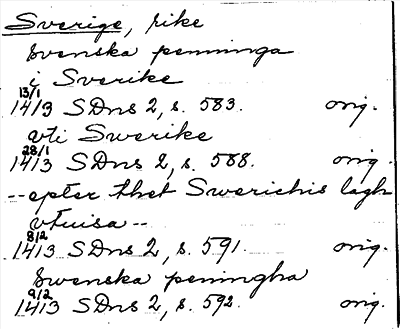 Sverige, rike
Svenska penninga
i Sverike
13/1
1413 SDns 2, s. 583. orig.
vti Swerike
28/1
1413 SDns 2, s. 588. orig.
--epter thet Swerichis lagh
vtuisa--
8/2
1413 SDns 2, s. 591. orig.
Swenska peningha
9/2
1413 SDns 2, s. 592. orig.